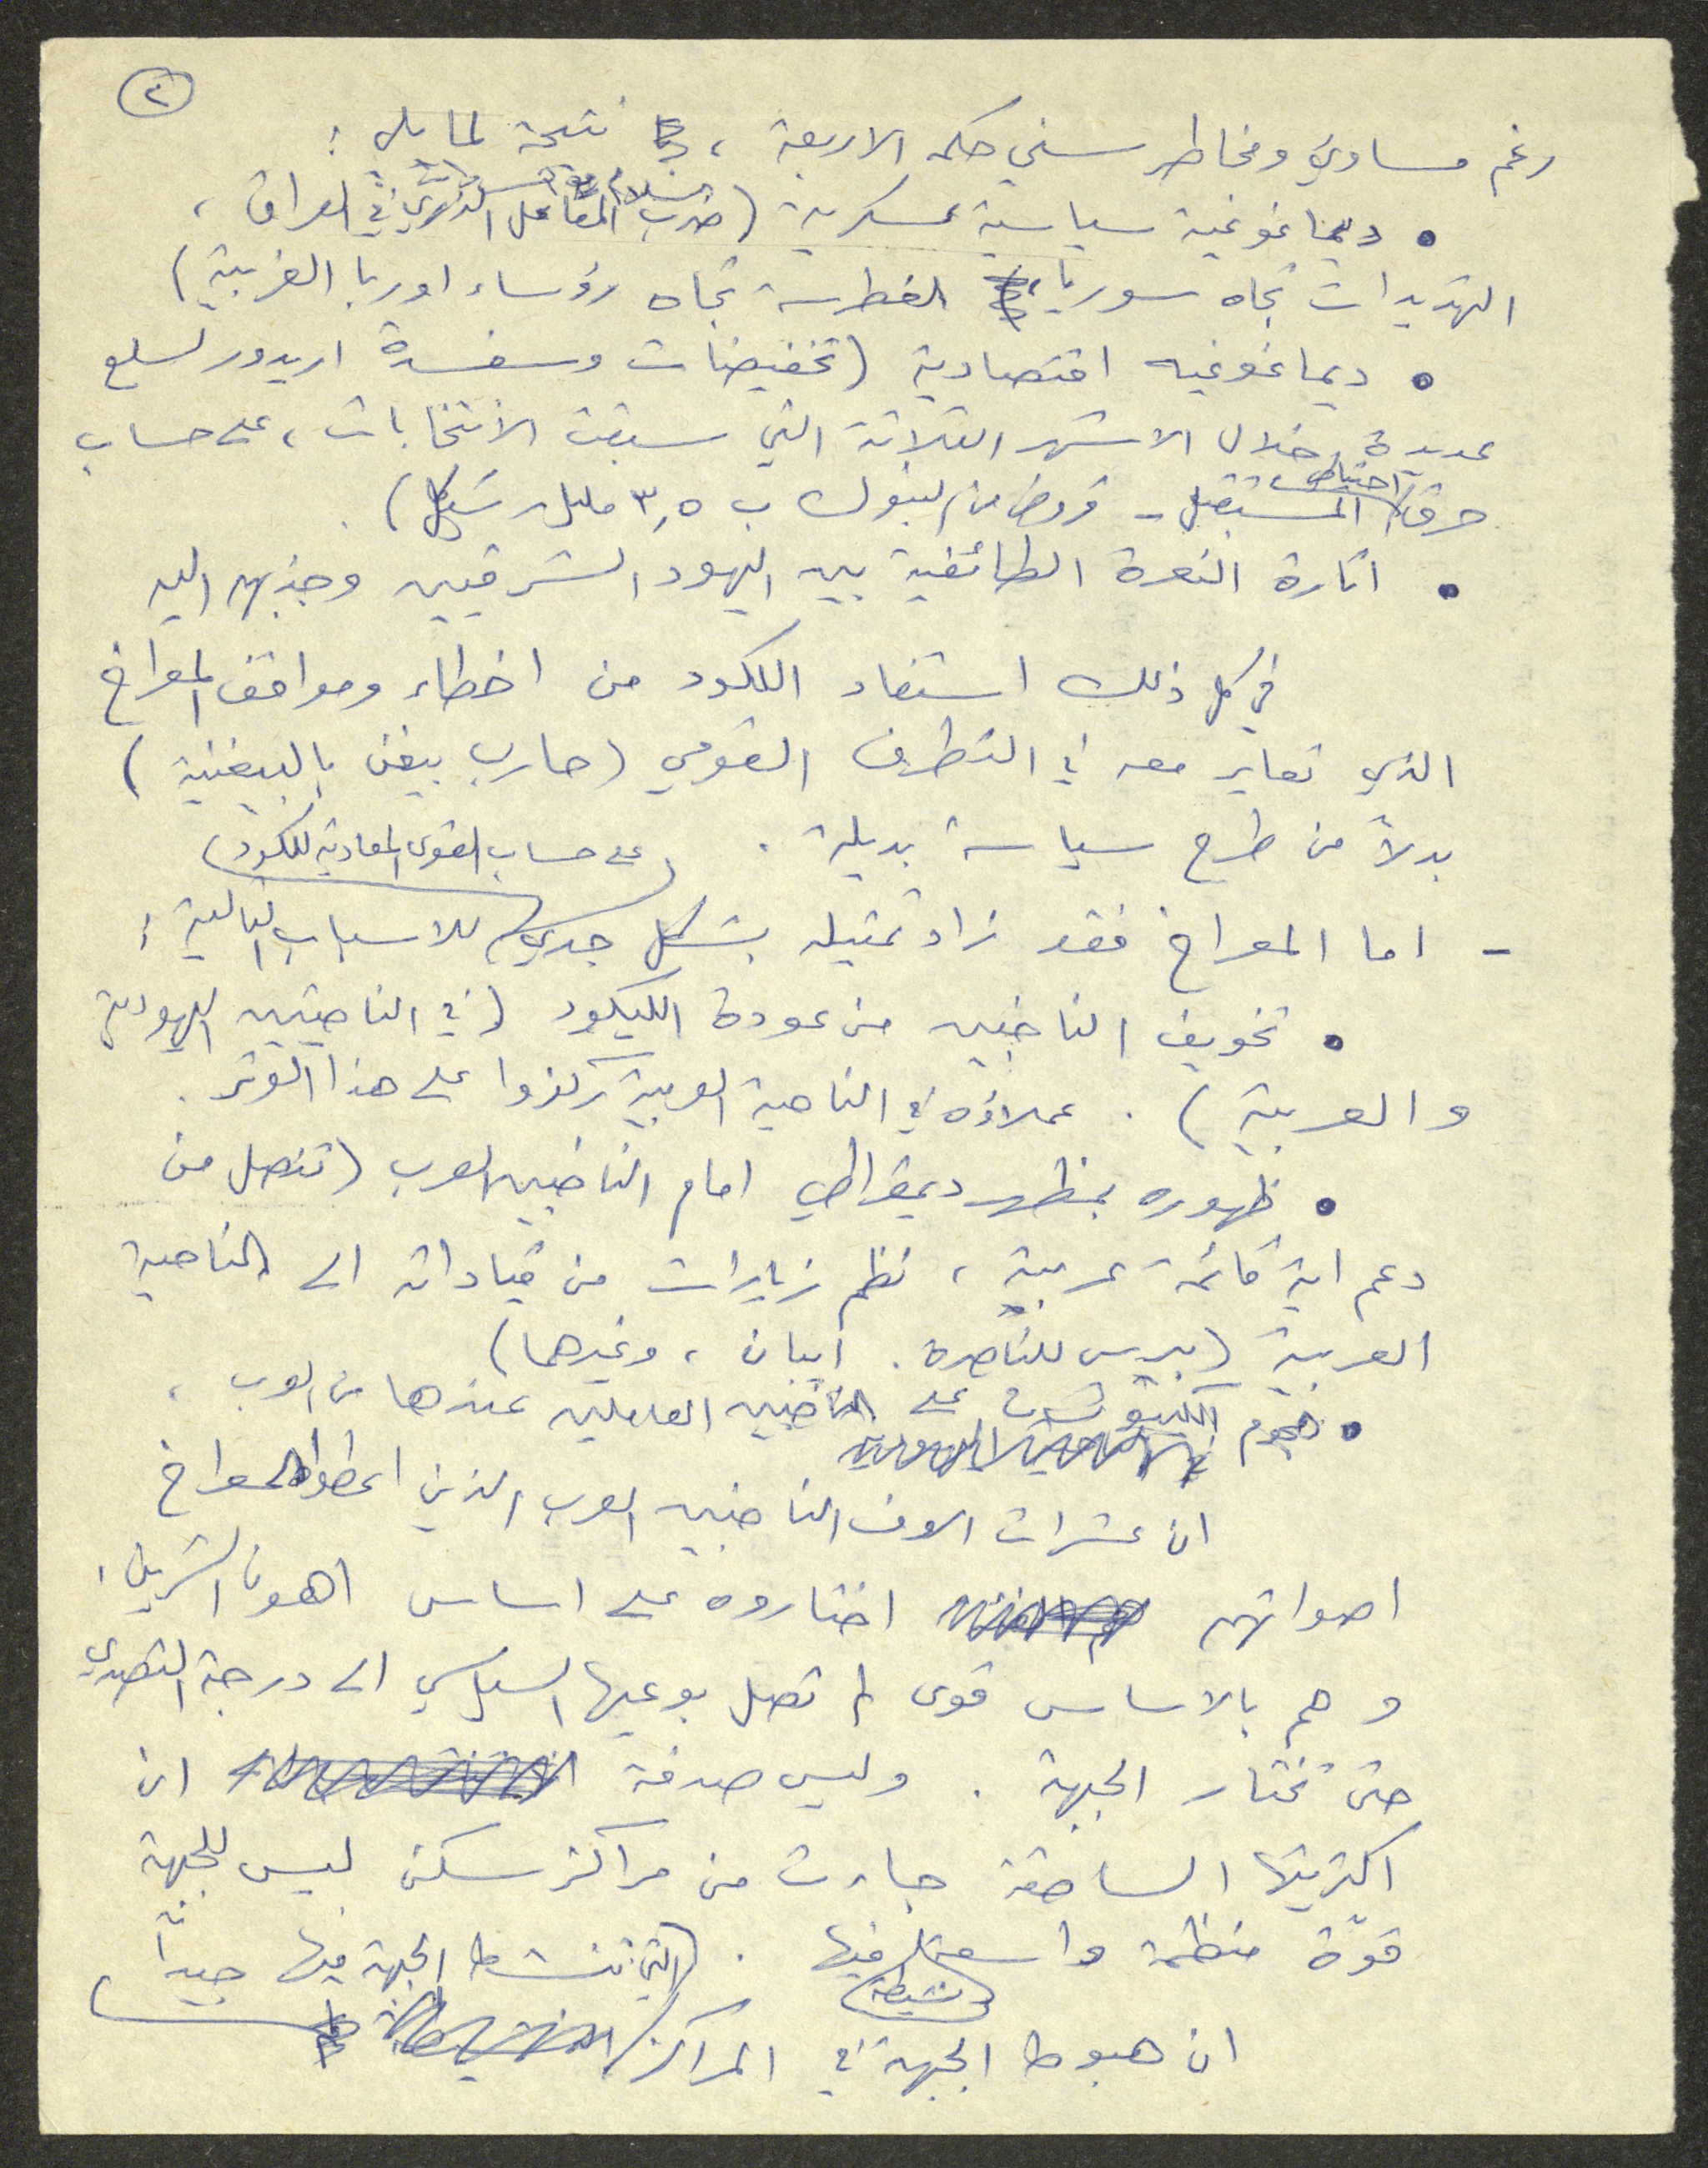 ٢
رغم مساوئ ومخاطر سني حكمه الاربعة ، نتيجة لما يلي :
• ديماغوغية سياسية عسكرية (ضرب المفاعل الذري في العراق ،
التهديدات تجاه سوريا ، الغطرسة تجاه رؤساء اوربا الغربية)
• ديماغوغيه اقتصادية (تخفيضات وسفسدة اريدور لسلع
عديدة خلال الاشهر الثلاثة التي سبقت الانتخابات ، على حساب
حرق احتياط المستقبل - قروض من البنوك ب ٣,٥ مليار شيكل) .
• اثارة النعرة الطائفية بين اليهود الشرقيين وجذبهم اليه
في كل ذلك استفاد الليكود من اخطاء ومواقف المعراخ
الذي تعاير معه في التطرف القومي (حارب بيغن بالبيغنية)
بدلاً من طرح سياسة بديلة .
على حساب القوى المعادية لليكود
- اما المعراخ فقد زاد تمثيله بشكل جدي للاسباب التالية :
• تخويف الناخبين من عودة الليكود (في الناحيتين اليهودية
والعربية) . عملاؤه في الناحية العربية ركزوا على هذا الوتر .
• ظهوره بمظهر ديمقراطي امام الناخبين العرب (تنصل من
دعم اية قائمة عربية ، نظم زيارات من قياداته الى الناحية
العربية (بيرس للناصرة . ايبان ، وغيرهما)
• هجوم الكيبوتسات على الناخبين العاملين عندها من العرب ،
ان عشرات الوف الناخبين العرب الذين اعطوا المعراخ
اصواتهم اختاروه على اساس اهون الشرين ،
وهم بالاساس قوى لم تصل بوعيها السياسي الى درجة التصدي
حتى تختار الجبهة . وليس صدفة ان
اكثريتها الساحقة جاءت من مراكز سكن ليس للجبهة
قوّة منظمة واسعة ونشيطة فيها .
ان هبوط الجبهة في المراكز التي تنشط الجبهة فيها جيداً